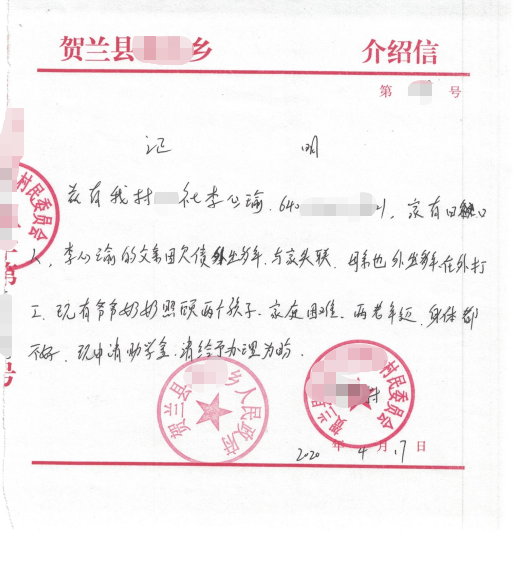 贺兰县 乡 介绍信
第 号
证 明
兹有我村 社李心瑜,640 ,家有四口
人,李心瑜的父亲因欠债 ,与家失联,母亲也 在外打
工,现有爷爷奶奶照顾两个孩子,家庭困难,两老年迈,身体都
不好,现申请助学金,请给予办理为盼.
贺兰县 乡人民政府
贺兰县 村民委员会
村
2020年4月17日
村民委员会
第
号